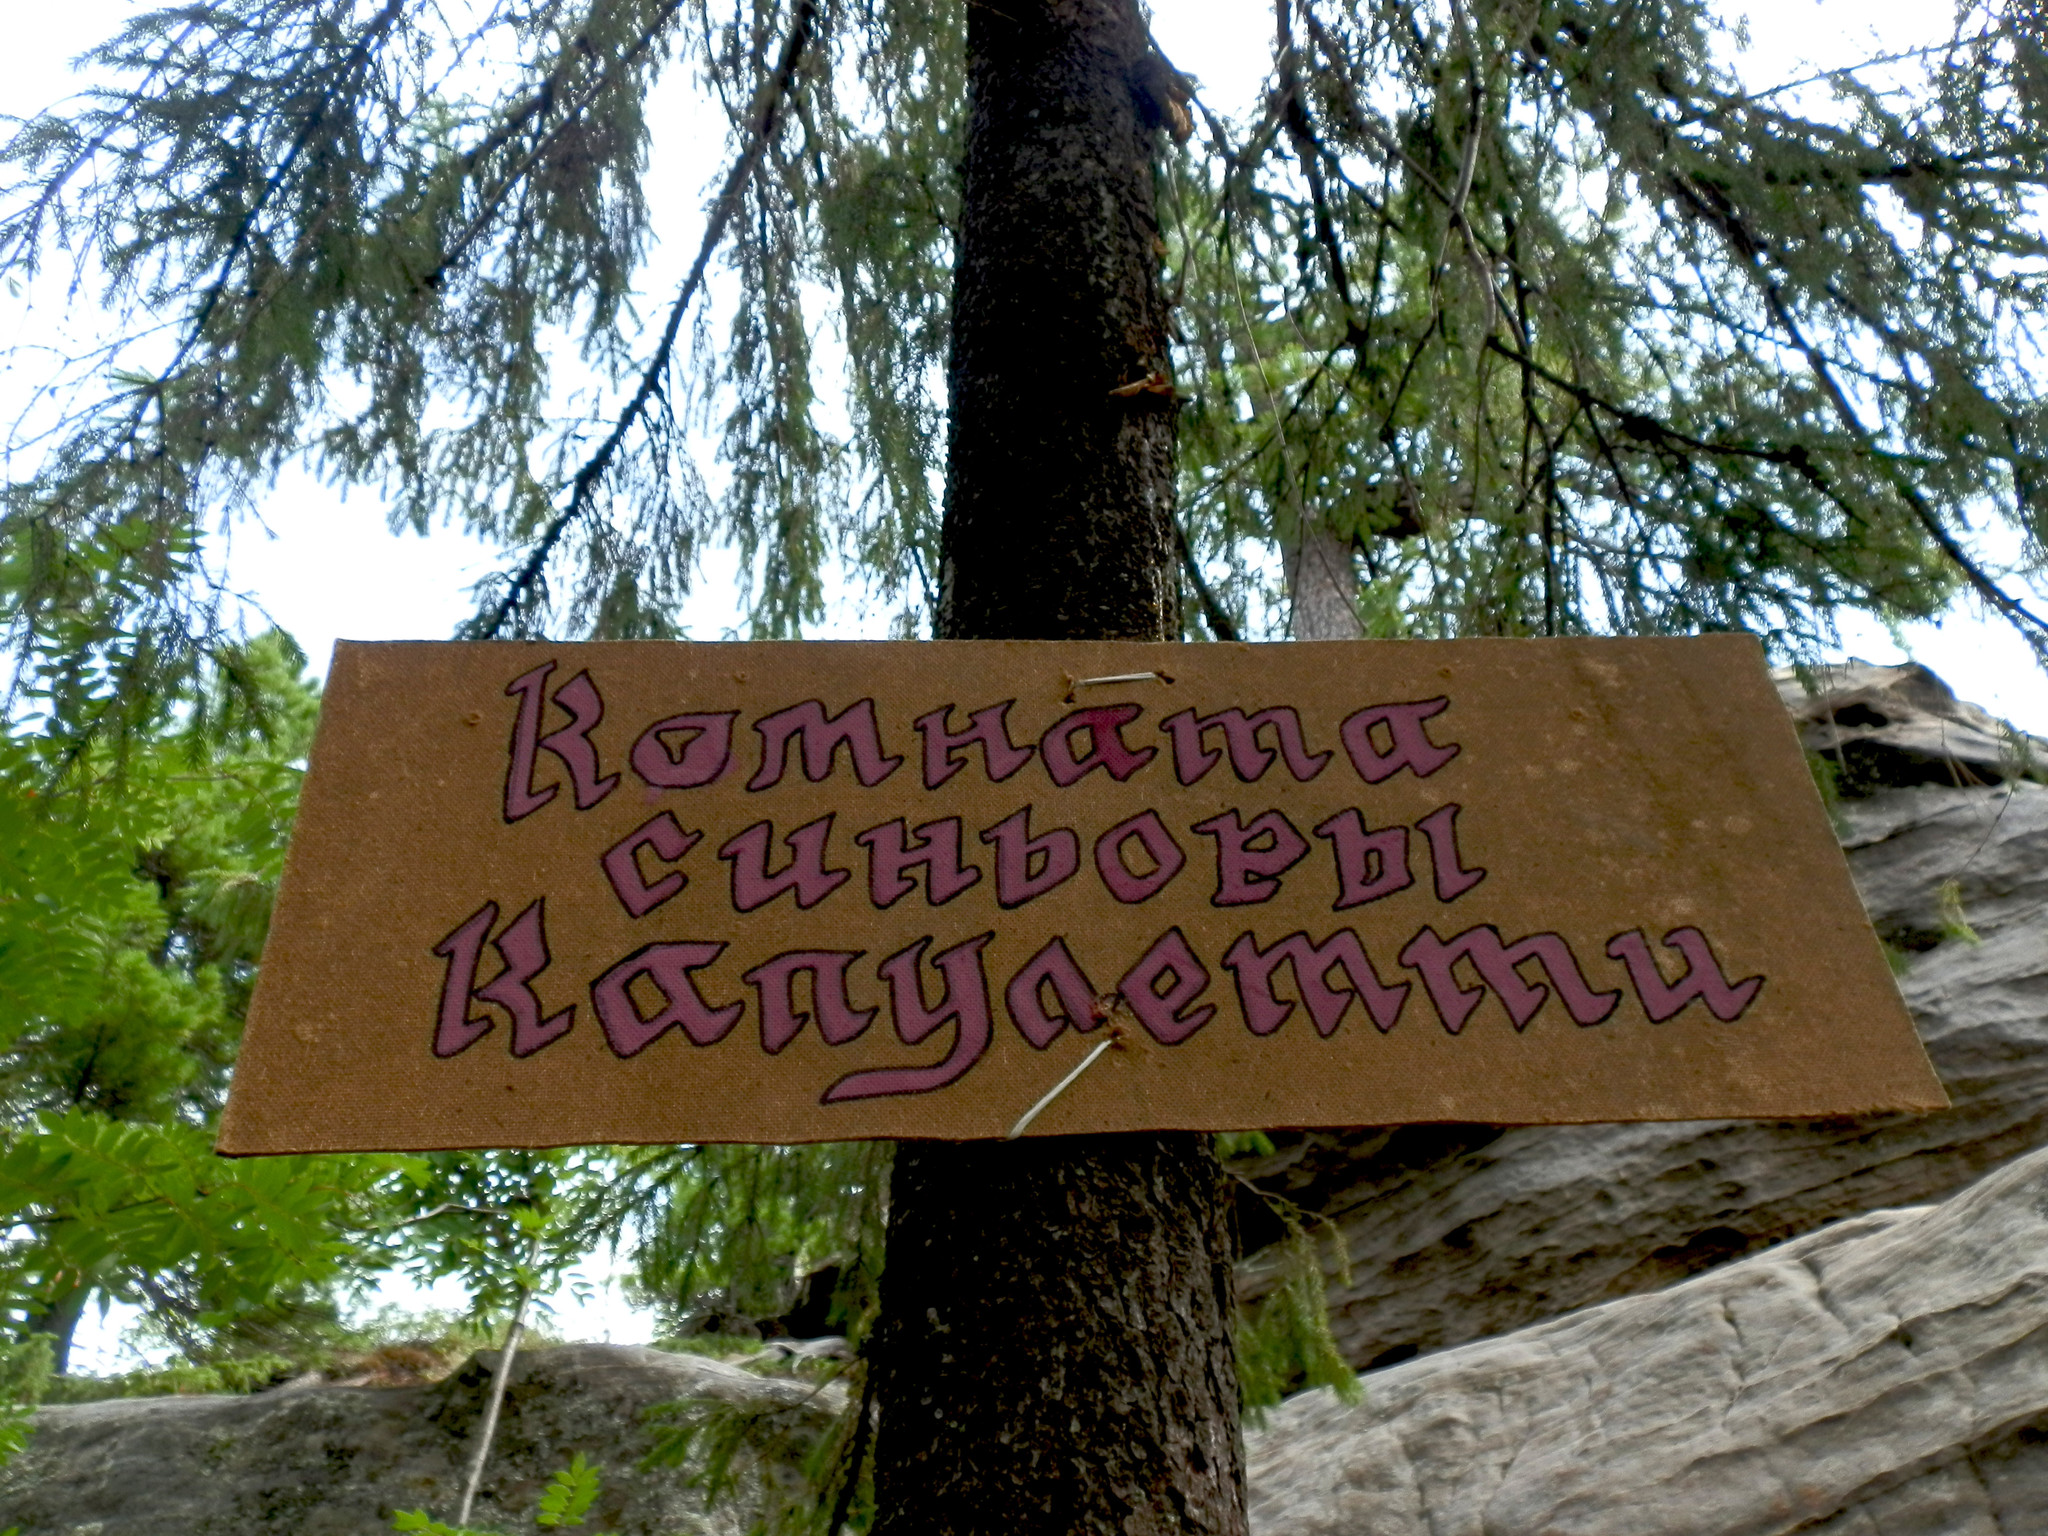 Комната
синьоры
Капулетти